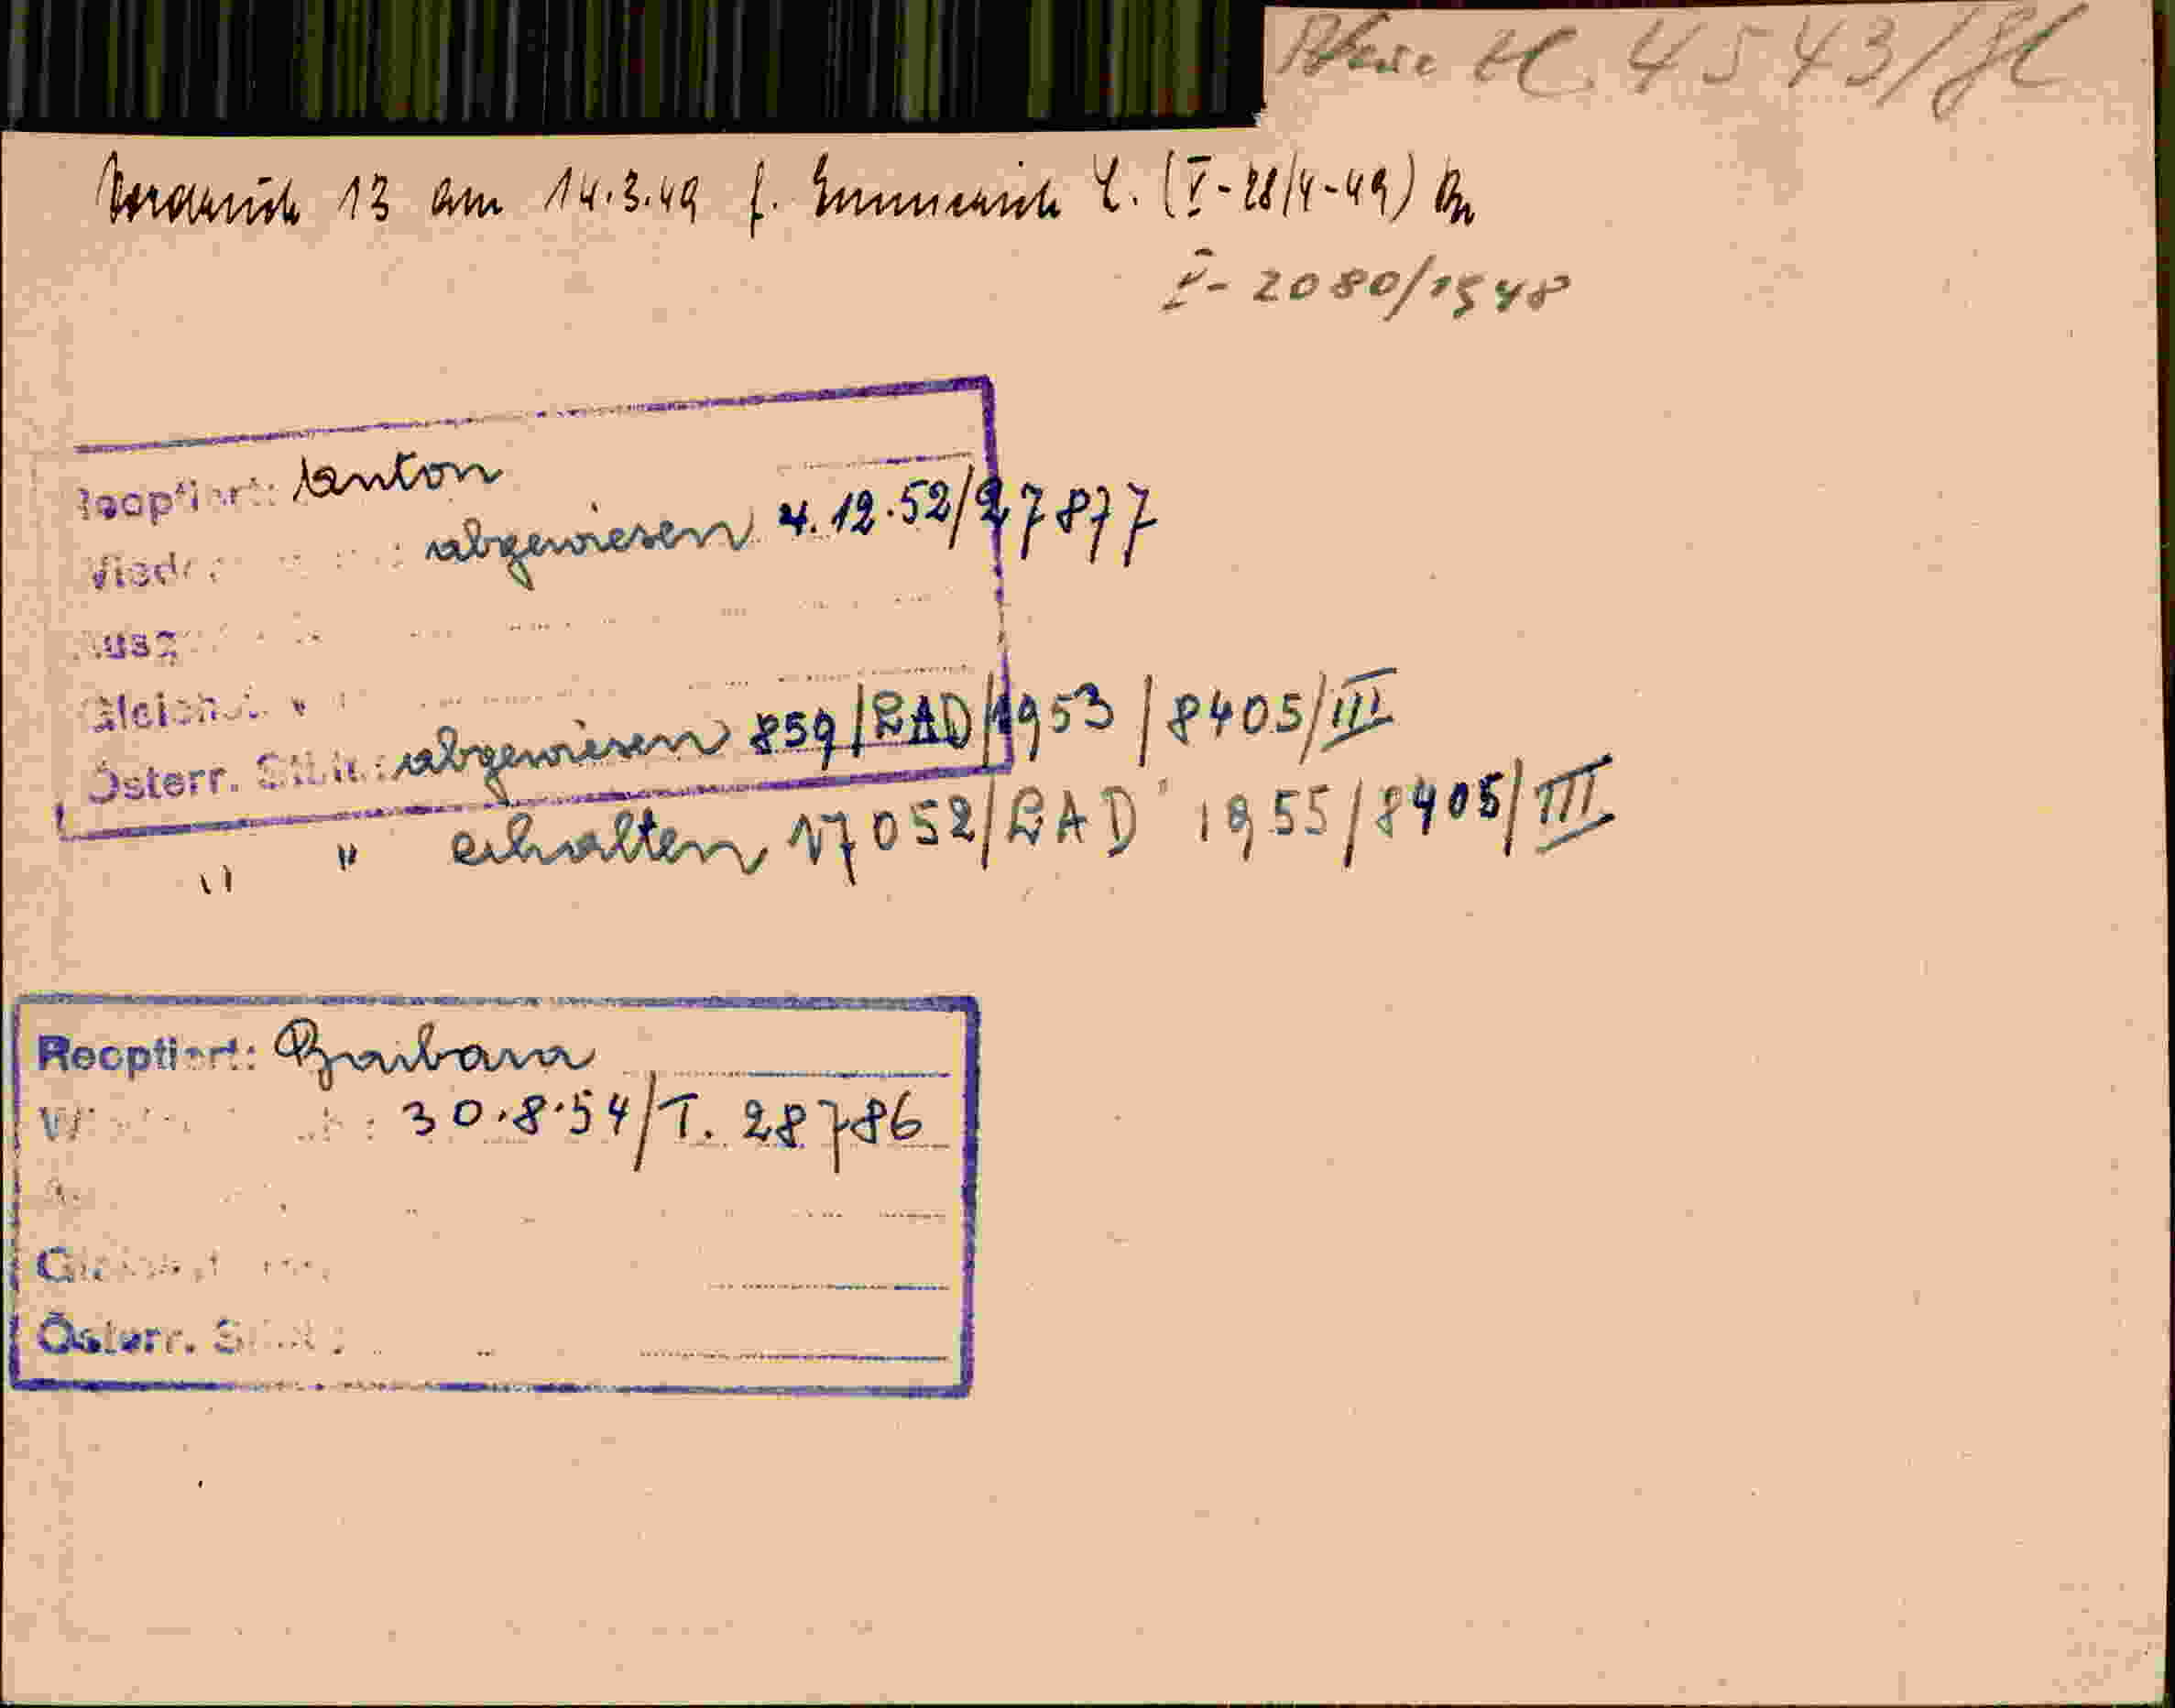 4543/H
Vordruck 13 am 14.3.49 f. Emmerich L. (V-28/4-49) Br
V-2080/1948
Reoptiert: Anton
abgewiesen 4.12.52/27877
Österr. Stb.: abgewiesen 859/LAD/1953/8405/III
" " erhalten 17052/LAD 1955/8405/III
Reoptiert: Barbara
30.8.54/T. 28786
Österr.